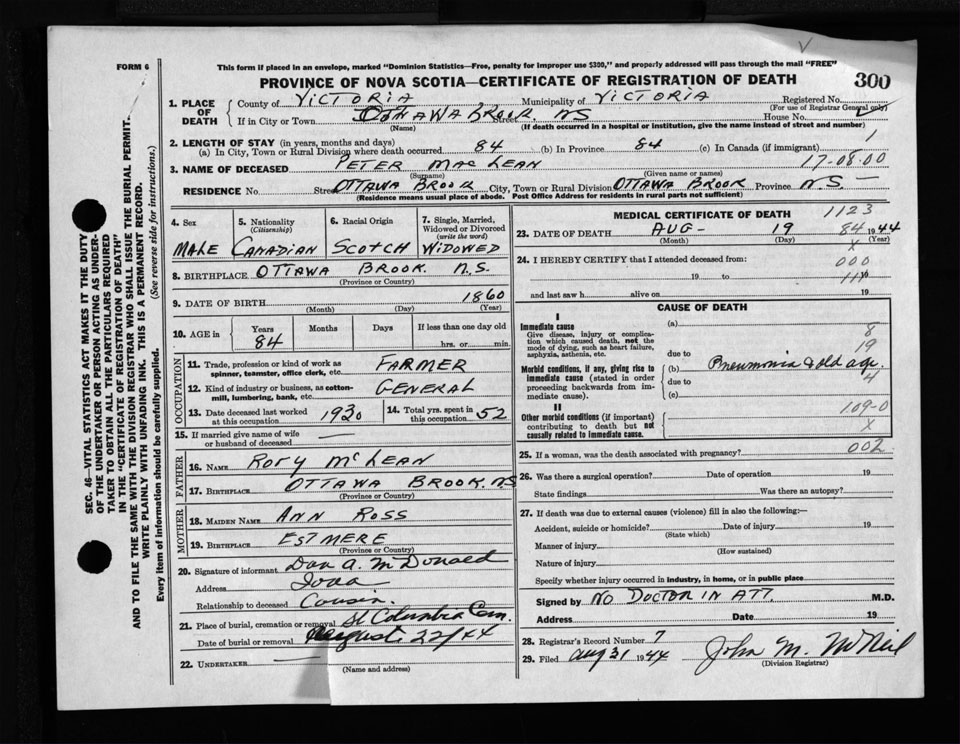 FORM 6
This form if placed in an envelope, marked "Dominion Statistics—Free, penalty for improper use $300," and properly addressed will pass through the mail "FREE"
PROVINCE OF NOVA SCOTIA—CERTIFICATE OF REGISTRATION OF DEATH
300
1. PLACE OF DEATH
County of VICTORIA Municipality of VICTORIA Registered No.
(For use of Registrar General only)
If in City or Town OTTAWA BROOK. NS Street House No.
(Name) (If death occurred in a hospital or institution, give the name instead of street and number)
2. LENGTH OF STAY (in years, months and days)
(a) In City, Town or Rural Division where death occurred 84 (b) In Province 84 (c) In Canada (if immigrant)
1
3. NAME OF DECEASED PETER MAC LEAN 17-08-00
(Surname) (Given name or names)
RESIDENCE No. Street OTTAWA BROOK City, Town or Rural Division OTTAWA BROOK Province N.S.
(Residence means usual place of abode. Post Office Address for residents in rural parts not sufficient)
SEC. 46—VITAL STATISTICS ACT MAKES IT THE DUTY
OF THE UNDERTAKER OR PERSON ACTING AS UNDER-
TAKER TO OBTAIN ALL THE PARTICULARS REQUIRED
IN THE "CERTIFICATE OF REGISTRATION OF DEATH"
AND TO FILE THE SAME WITH THE DIVISION REGISTRAR WHO SHALL ISSUE THE BURIAL PERMIT.
WRITE PLAINLY WITH UNFADING INK. THIS IS A PERMANENT RECORD.
Every item of information should be carefully supplied. (See reverse side for instructions.)
4. Sex
MALE
5. Nationality
(Citizenship)
CANADIAN
6. Racial Origin
SCOTCH
7. Single, Married,
Widowed or Divorced
(write the word)
WIDOWED
8. BIRTHPLACE OTTAWA BROOK. N.S.
(Province or Country)
9. DATE OF BIRTH 1860
(Month) (Day) (Year)
10. AGE in
Years Months Days If less than one day old
84 hrs. or min.
OCCUPATION
11. Trade, profession or kind of work as
spinner, teamster, office clerk, etc. FARMER
12. Kind of industry or business, as cotton-
mill, lumbering, bank, etc. GENERAL
13. Date deceased last worked
at this occupation 1930
14. Total yrs. spent in
this occupation 52
15. If married give name of wife
or husband of deceased —
FATHER
16. NAME RORY McLEAN
17. BIRTHPLACE OTTAWA BROOK. NS
(Province or Country)
MOTHER
18. MAIDEN NAME ANN ROSS
19. BIRTHPLACE ESTMERE
(Province or Country)
20. Signature of informant Dan A. McDonald
Address Iona
Relationship to deceased Cousin.
21. Place of burial, cremation or removal St Columba Cem.
Date of burial or removal August 22/44
22. UNDERTAKER —
(Name and address)
MEDICAL CERTIFICATE OF DEATH
1123
23. DATE OF DEATH AUG- 19 1944
(Month) (Day) (Year)
84
X
24. I HEREBY CERTIFY that I attended deceased from:
000
19 to 19
and last saw h alive on 19
CAUSE OF DEATH
I
Immediate cause
Give disease, injury or complica-
tion which caused death, not the
mode of dying, such as heart failure,
asphyxia, asthenia, etc.
(a)
8
19
due to
Morbid conditions, if any, giving rise to
immediate cause (stated in order
proceeding backwards from im-
mediate cause).
(b) Pneumonia & old age.
due to
4
(c)
II
Other morbid conditions (if important)
contributing to death but not
causally related to immediate cause.
109-0
X
25. If a woman, was the death associated with pregnancy? 002
26. Was there a surgical operation? Date of operation 19
State findings Was there an autopsy?
27. If death was due to external causes (violence) fill in also the following:—
Accident, suicide or homicide? Date of injury 19
(State which)
Manner of injury
(How sustained)
Nature of injury
Specify whether injury occurred in industry, in home, or in public place
Signed by NO DOCTOR IN ATT. M.D.
Address Date 19
28. Registrar's Record Number 7
29. Filed Aug 31 1944 John M. McNeil
(Division Registrar)